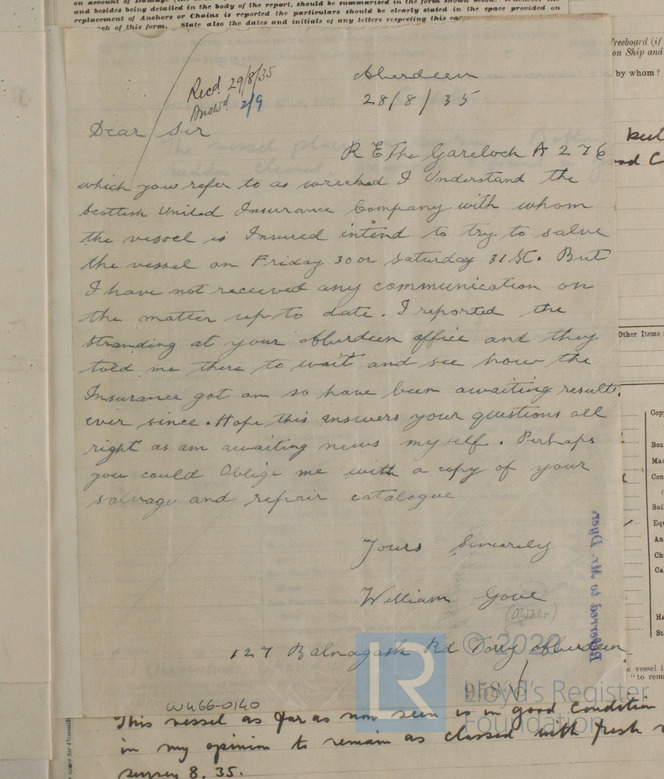 on account of Damage
and besides being detailed in the body of the report, should be summarised in the form shown below.
replacement of Anchors or Chains is reported the particulars should be clearly stated in the space provided on
of this form. State also the dates and initials of any letters respecting this
Freeboard (if
on Ship and
by whom?
Recd. 29/8/35
Answd 2/9
Aberdeen
28/8/35
Dear Sir
R E The Gareloch A 276
which you refer to as wrecked I Understand the
Scottish United Insurance Company with whom
the vessel is Insured intend to try to salve
the vessel on Friday 30 or Saturday 31st. But
I have not received any communication on
the matter up to date. I reported the
stranding at your Aberdeen office and they
told me there to wait and see how the
Insurance got on so have been awaiting results
ever since. Hope this answers your questions all
right as am awaiting news myself. Perhaps
you could Oblige me with a copy of your
salvage and repair catalogue
Yours Sincerely
William Gove
(owner)
127 Balnagask Rd Torry Aberdeen
Referred to Mr. Dyer
Other Items
LR
© 2020
Lloyd's Register
Foundation
W466-0140
This vessel as far as now seen is in good condition
in my opinion to remain as classed with fresh
survey 8,35.